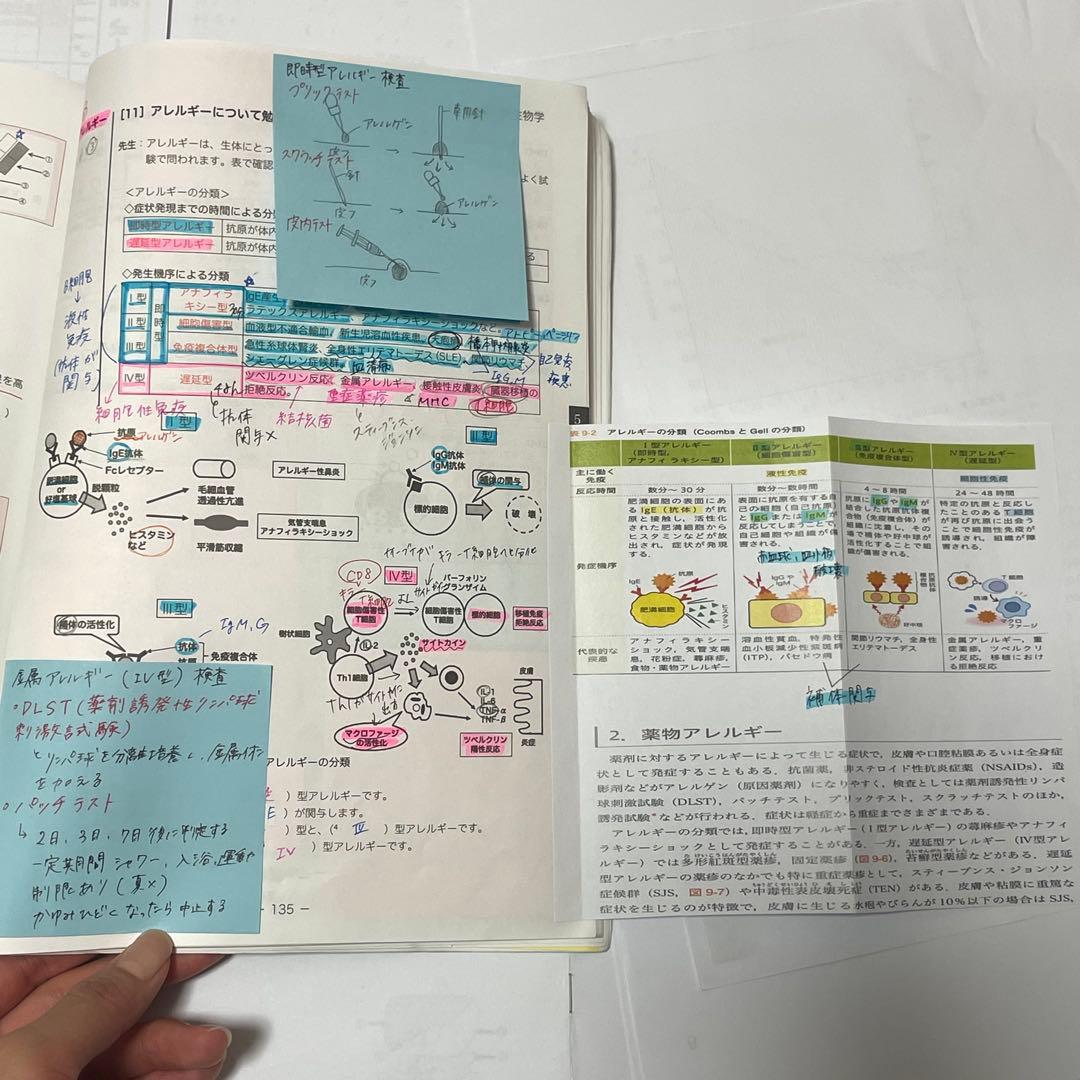 即時型アレルギー検査
プリックテスト
アレルゲン
専用針
スクラッチテスト
針
皮フ
アレルゲン
皮内テスト
皮フ
[11] アレルギーについて勉
生物学
アレルギー
先生：アレルギーは、生体にとっ
よく試
験で問われます。表で確認
<アレルギーの分類>
◇症状発現までの時間による分
即時型アレルギー 抗原が体内
遅延型アレルギー 抗原が体内
る
◇発生機序による分類
Ⅰ型 即時型 アナフィラキシー型 IgE産生
ラテックスアレルギー、アナフィラキシーショックなど。
Ⅱ型 細胞傷害型 血液型不適合輸血、新生児溶血性疾患、天疱瘡
Ⅲ型 免疫複合体型 急性糸球体腎炎、全身性エリテマトーデス（SLE）、関節リウマチ、
シェーグレン症候群、血清病
自己免疫
疾患
IgG,M
Ⅳ型 遅延型 ツベルクリン反応、金属アレルギー、接触性皮膚炎、臓器移植の
拒絶反応。
重症薬疹
MHC
T細胞
液性
免疫
(抗体が
関与)
細胞性免疫
抗体
関与×
結核菌
スティーブンス
ジョンソン
5
Ⅰ型
抗原
アレルゲン
IgE抗体
Fcレセプター
肥満細胞
or
好塩基球
脱顆粒
ヒスタミン
など
毛細血管
透過性亢進
平滑筋収縮
アレルギー性鼻炎
気管支喘息
アナフィラキシーショック
Ⅱ型
IgG抗体
IgM抗体
補体の関与
標的細胞
破 壊
Ⅳ型
CD8
キラーT細胞
細胞傷害性
T細胞
細胞傷害性
T細胞
パーフォリン
グランザイム
標的細胞
移植免疫
拒絶反応
樹状細胞
IL-2
サイトカイン
Th1細胞
マクロファージ
の活性化
IL-1
IL-6
TNF-α
TNF-β
皮膚
炎症
ツベルクリン
陽性反応
Ⅲ型
補体の活性化
IgM,G
抗体
抗原
免疫複合体
金属アレルギー(Ⅳ型)検査
・DLST(薬剤誘発性リンパ球
刺激試験)
→リンパ球を分離培養し、金属イオン
を加える
○パッチテスト
↳2日、3日、7日後に判定する
一定期間シャワー、入浴、運動
制限あり(夏×)
かゆみひどくなったら中止する
アレルギーの分類
）型アレルギーです。
E ）が関与します。
）型と、（⁴ Ⅳ ）型アレルギーです。
Ⅳ ）型アレルギーです。
- 135 -
表 9-2 アレルギーの分類（Coombs と Gell の分類）
Ⅰ型アレルギー
（即時型，
アナフィラキシー型）
Ⅱ型アレルギー
（細胞傷害型）
Ⅲ型アレルギー
（免疫複合体型）
Ⅳ型アレルギー
（遅延型）
主に働く
免疫
液性免疫
細胞性免疫
反応時間
数分～30分
数分～数時間
4～8時間
24～48時間
発症機序
肥満細胞の表面にあ
るIgE（抗体）が抗原
と接触し，活性化さ
れた肥満細胞から
ヒスタミンなどが放
出され，症状が発現
する．
表面に抗原を有する自
己の細胞（自己抗原）
とIgGまたはIgMが
反応してしまうことで，
自己細胞や組織が傷
害される．
抗原にIgGやIgMが
結合した抗原抗体複
合物（免疫複合体）が
組織に沈着し，その
場で補体や好中球が
活性化することで組
織が傷害される．
特定の抗原と反応し
たことのあるT細胞
が再び抗原に出会う
ことで細胞性免疫が
誘導され，組織が障
害される．
赤血球、血小板
破壊
IgE
抗原
肥満細胞
ヒスタミン
IgGや
IgM
抗原抗体
複合物
好中球
T細胞
誘導
マクロ
ファージ
代表的な
疾患
アナフィラキシー
ショック，気管支喘
息，花粉症，蕁麻疹，
食物・薬物アレルギー
溶血性貧血，特発性
血小板減少性紫斑病
（ITP），バセドウ病
関節リウマチ，全身性
エリテマトーデス
金属アレルギー，重
症薬疹，ツベルクリ
ン反応，移植におけ
る拒絶反応
補体関与
2．薬物アレルギー
薬剤に対するアレルギーによって生じる症状で，皮膚や口腔粘膜あるいは全身症
状として発症することもある．抗菌薬，非ステロイド性抗炎症薬（NSAIDs），造
影剤などがアレルゲン（原因薬剤）になりやすく，検査としては薬剤誘発性リンパ
球刺激試験（DLST），パッチテスト，プリックテスト，スクラッチテストのほか，
誘発試験*などが行われる．症状は軽症から重症までさまざまである．
アレルギーの分類では，即時型アレルギー（Ⅰ型アレルギー）の蕁麻疹やアナフィ
ラキシーショックとして発症することがある．一方，遅延型アレルギー（Ⅳ型アレ
ルギー）では多形紅斑型薬疹，固定薬疹（図9-6），苔癬型薬疹などがある．遅延
型アレルギーの薬疹のなかでも特に重症薬疹として，スティーブンス・ジョンソン
症候群（SJS，図9-7）や中毒性表皮壊死症（TEN）がある．皮膚や粘膜に重篤な
症状を生じるのが特徴で，皮膚に生じる水疱やびらんが10％以下の場合はSJS，